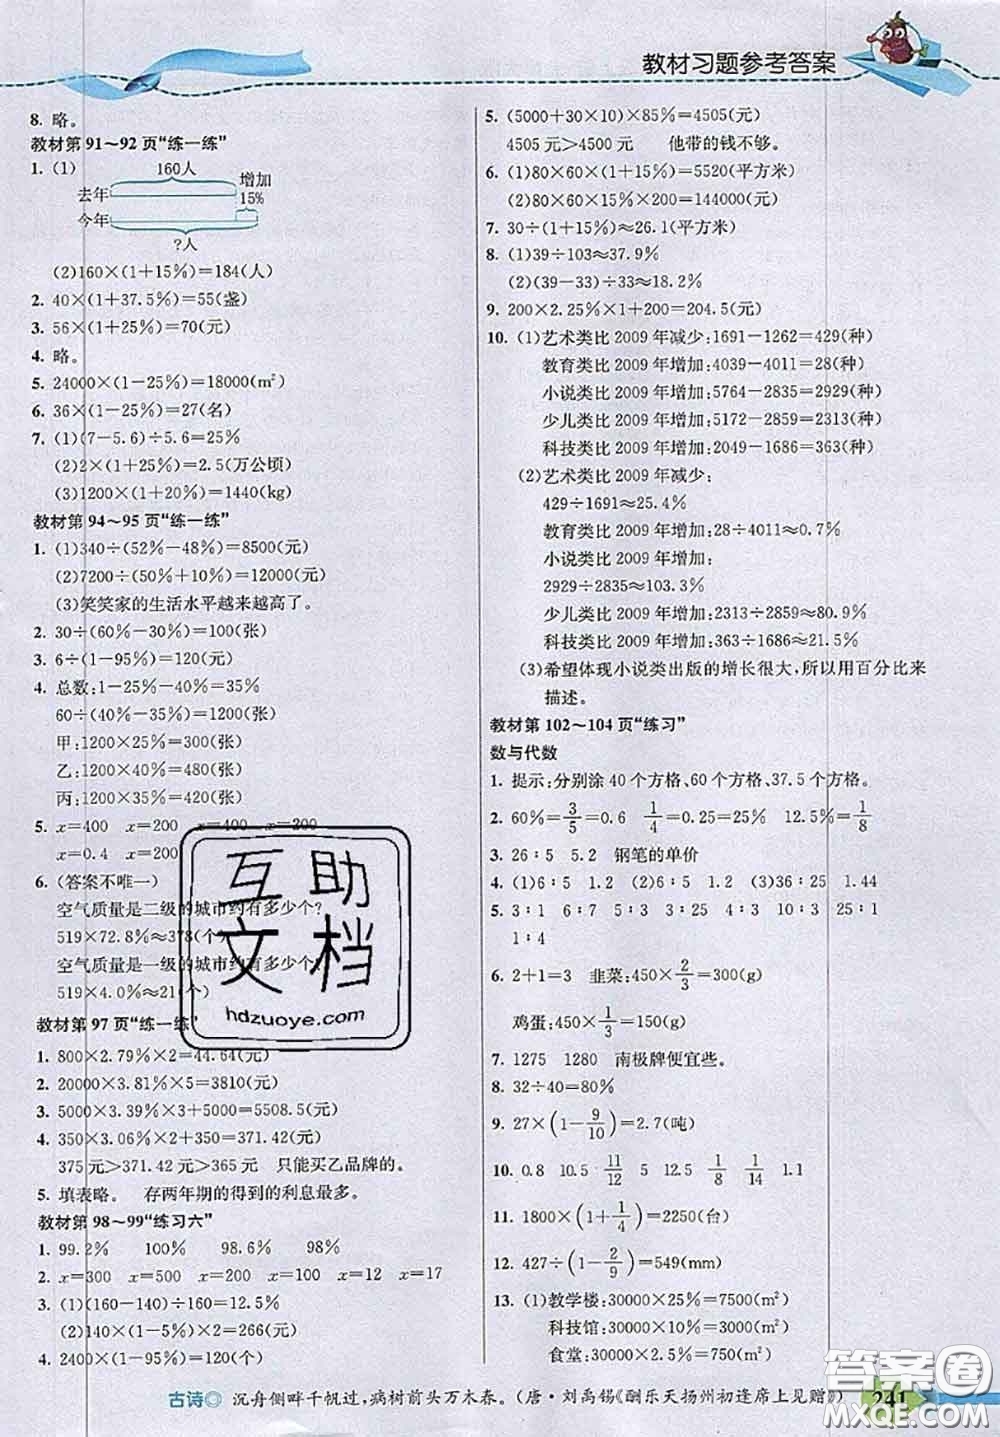 教材习题参考答案
8. 略。
教材第 91～92 页“练一练”
1. (1)
160人
去年
增加
15%
今年
?人
(2)160×(1+15%)=184(人)
2. 40×(1+37.5%)=55(盏)
3. 56×(1+25%)=70(元)
4. 略。
5. 24000×(1-25%)=18000(m²)
6. 36×(1-25%)=27(名)
7. (1)(7-5.6)÷5.6=25%
(2)2×(1+25%)=2.5(万公顷)
(3)1200×(1+20%)=1440(kg)
教材第 94～95 页“练一练”
1. (1)340÷(52%-48%)=8500(元)
(2)7200÷(50%+10%)=12000(元)
(3)笑笑家的生活水平越来越高了。
2. 30÷(60%-30%)=100(张)
3. 6÷(1-95%)=120(元)
4. 总数:1-25%-40%=35%
60÷(40%-35%)=1200(张)
甲:1200×25%=300(张)
乙:1200×40%=480(张)
丙:1200×35%=420(张)
5. x=400 x=200 x=400 x=200
x=0.4 x=200
6. (答案不唯一)
空气质量是二级的城市约有多少个?
519×72.8%≈378(个)
空气质量是一级的城市约有多少个?
519×4.0%≈21(个)
教材第 97 页“练一练”
1. 800×2.79%×2=44.64(元)
2. 20000×3.81%×5=3810(元)
3. 5000×3.39%×3+5000=5508.5(元)
4. 350×3.06%×2+350=371.42(元)
375元>371.42元>365元 只能买乙品牌的。
5. 填表略。 存两年期的得到的利息最多。
教材第 98～99“练习六”
1. 99.2% 100% 98.6% 98%
2. x=300 x=500 x=200 x=100 x=12 x=17
3. (1)(160-140)÷160=12.5%
(2)140×(1-5%)×2=266(元)
4. 2400×(1-95%)=120(个)
5. (5000+30×10)×85%=4505(元)
4505元>4500元 他带的钱不够。
6. (1)80×60×(1+15%)=5520(平方米)
(2)80×60×15%×200=144000(元)
7. 30÷(1+15%)≈26.1(平方米)
8. (1)39÷103≈37.9%
(2)(39-33)÷33≈18.2%
9. 200×2.25%×1+200=204.5(元)
10. (1)艺术类比 2009 年减少:1691-1262=429(种)
教育类比 2009 年增加:4039-4011=28(种)
小说类比 2009 年增加:5764-2835=2929(种)
少儿类比 2009 年增加:5172-2859=2313(种)
科技类比 2009 年增加:2049-1686=363(种)
(2)艺术类比 2009 年减少:
429÷1691≈25.4%
教育类比 2009 年增加:28÷4011≈0.7%
小说类比 2009 年增加:
2929÷2835≈103.3%
少儿类比 2009 年增加:2313÷2859≈80.9%
科技类比 2009 年增加:363÷1686≈21.5%
(3)希望体现小说类出版的增长很大,所以用百分比来
描述。
教材第 102～104 页“练习”
数与代数
1. 提示:分别涂 40 个方格、60 个方格、37.5 个方格。
2. 60%=3/5=0.6 1/4=0.25=25% 12.5%=1/8
3. 26∶5 5.2 钢笔的单价
4. (1)6∶5 1.2 (2)6∶5 1.2 (3)36∶25 1.44
5. 3∶1 6∶7 5∶3 3∶25 4∶3 10∶1
1∶4
6. 2+1=3 韭菜:450×2/3=300(g)
鸡蛋:450×1/3=150(g)
7. 1275 1280 南极牌便宜些。
8. 32÷40=80%
9. 27×(1-9/10)=2.7(吨)
10. 0.8 10.5 11/12 5 12.5 1/8 1/14 1.1
11. 1800×(1+1/4)=2250(台)
12. 427÷(1-2/9)=549(mm)
13. (1)教学楼:30000×25%=7500(m²)
科技馆:30000×10%=3000(m²)
食堂:30000×5%=1500(m²)
古诗◎ 沉舟侧畔千帆过,病树前头万木春。(唐·刘禹锡《酬乐天扬州初逢席上见赠》)
241
互助
文档
hdzuoye.com
答案圈
MXQE.COM